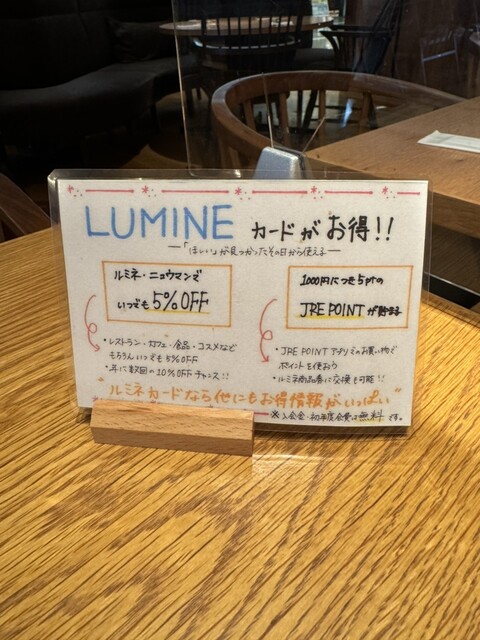 LUMINE カードがお得!!
―「ほしい」が見つかったその日から使える―
ルミネ・ニュウマンで
いつでも5%OFF
・レストラン・カフェ・食品・コスメなど
もちろんいつでも5%OFF
・年に数回の10%OFFチャンス!!
1000円につき5ptの
JRE POINTが貯まる
・JRE POINTアプリでのお買い物で
ポイントを使おう
・ルミネ商品券に交換も可能!!
"ルミネカードなら他にもお得情報がいっぱい"
※入会金・初年度会費は無料です。